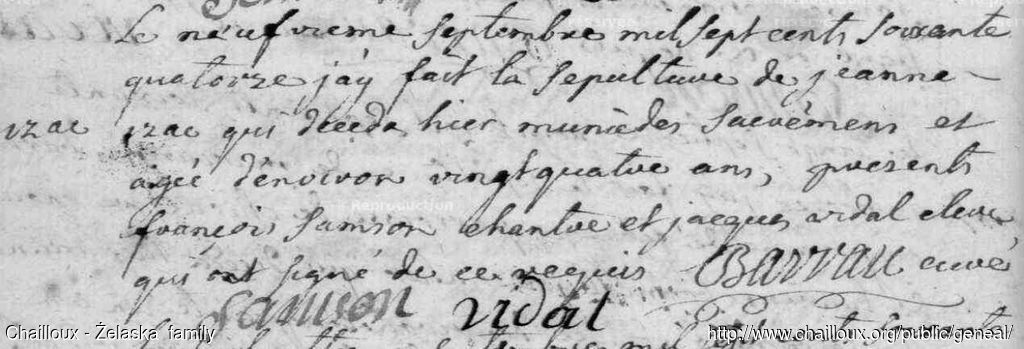 Le neufvieme septembre mil sept cents soixante
quatorze j'aÿ fait la sepulture de jeanne
izac
izac qui déceda hier muniè des sacrèmens et
agée d'énviron vingt quatre ans, presents
françois samson chantre et jacques vidal clerc
qui ont signé de ce requis Barrau curé
Samson vidal
Chailloux - Żelaska family
http://www.chailloux.org/public/geneal/
Reproduction